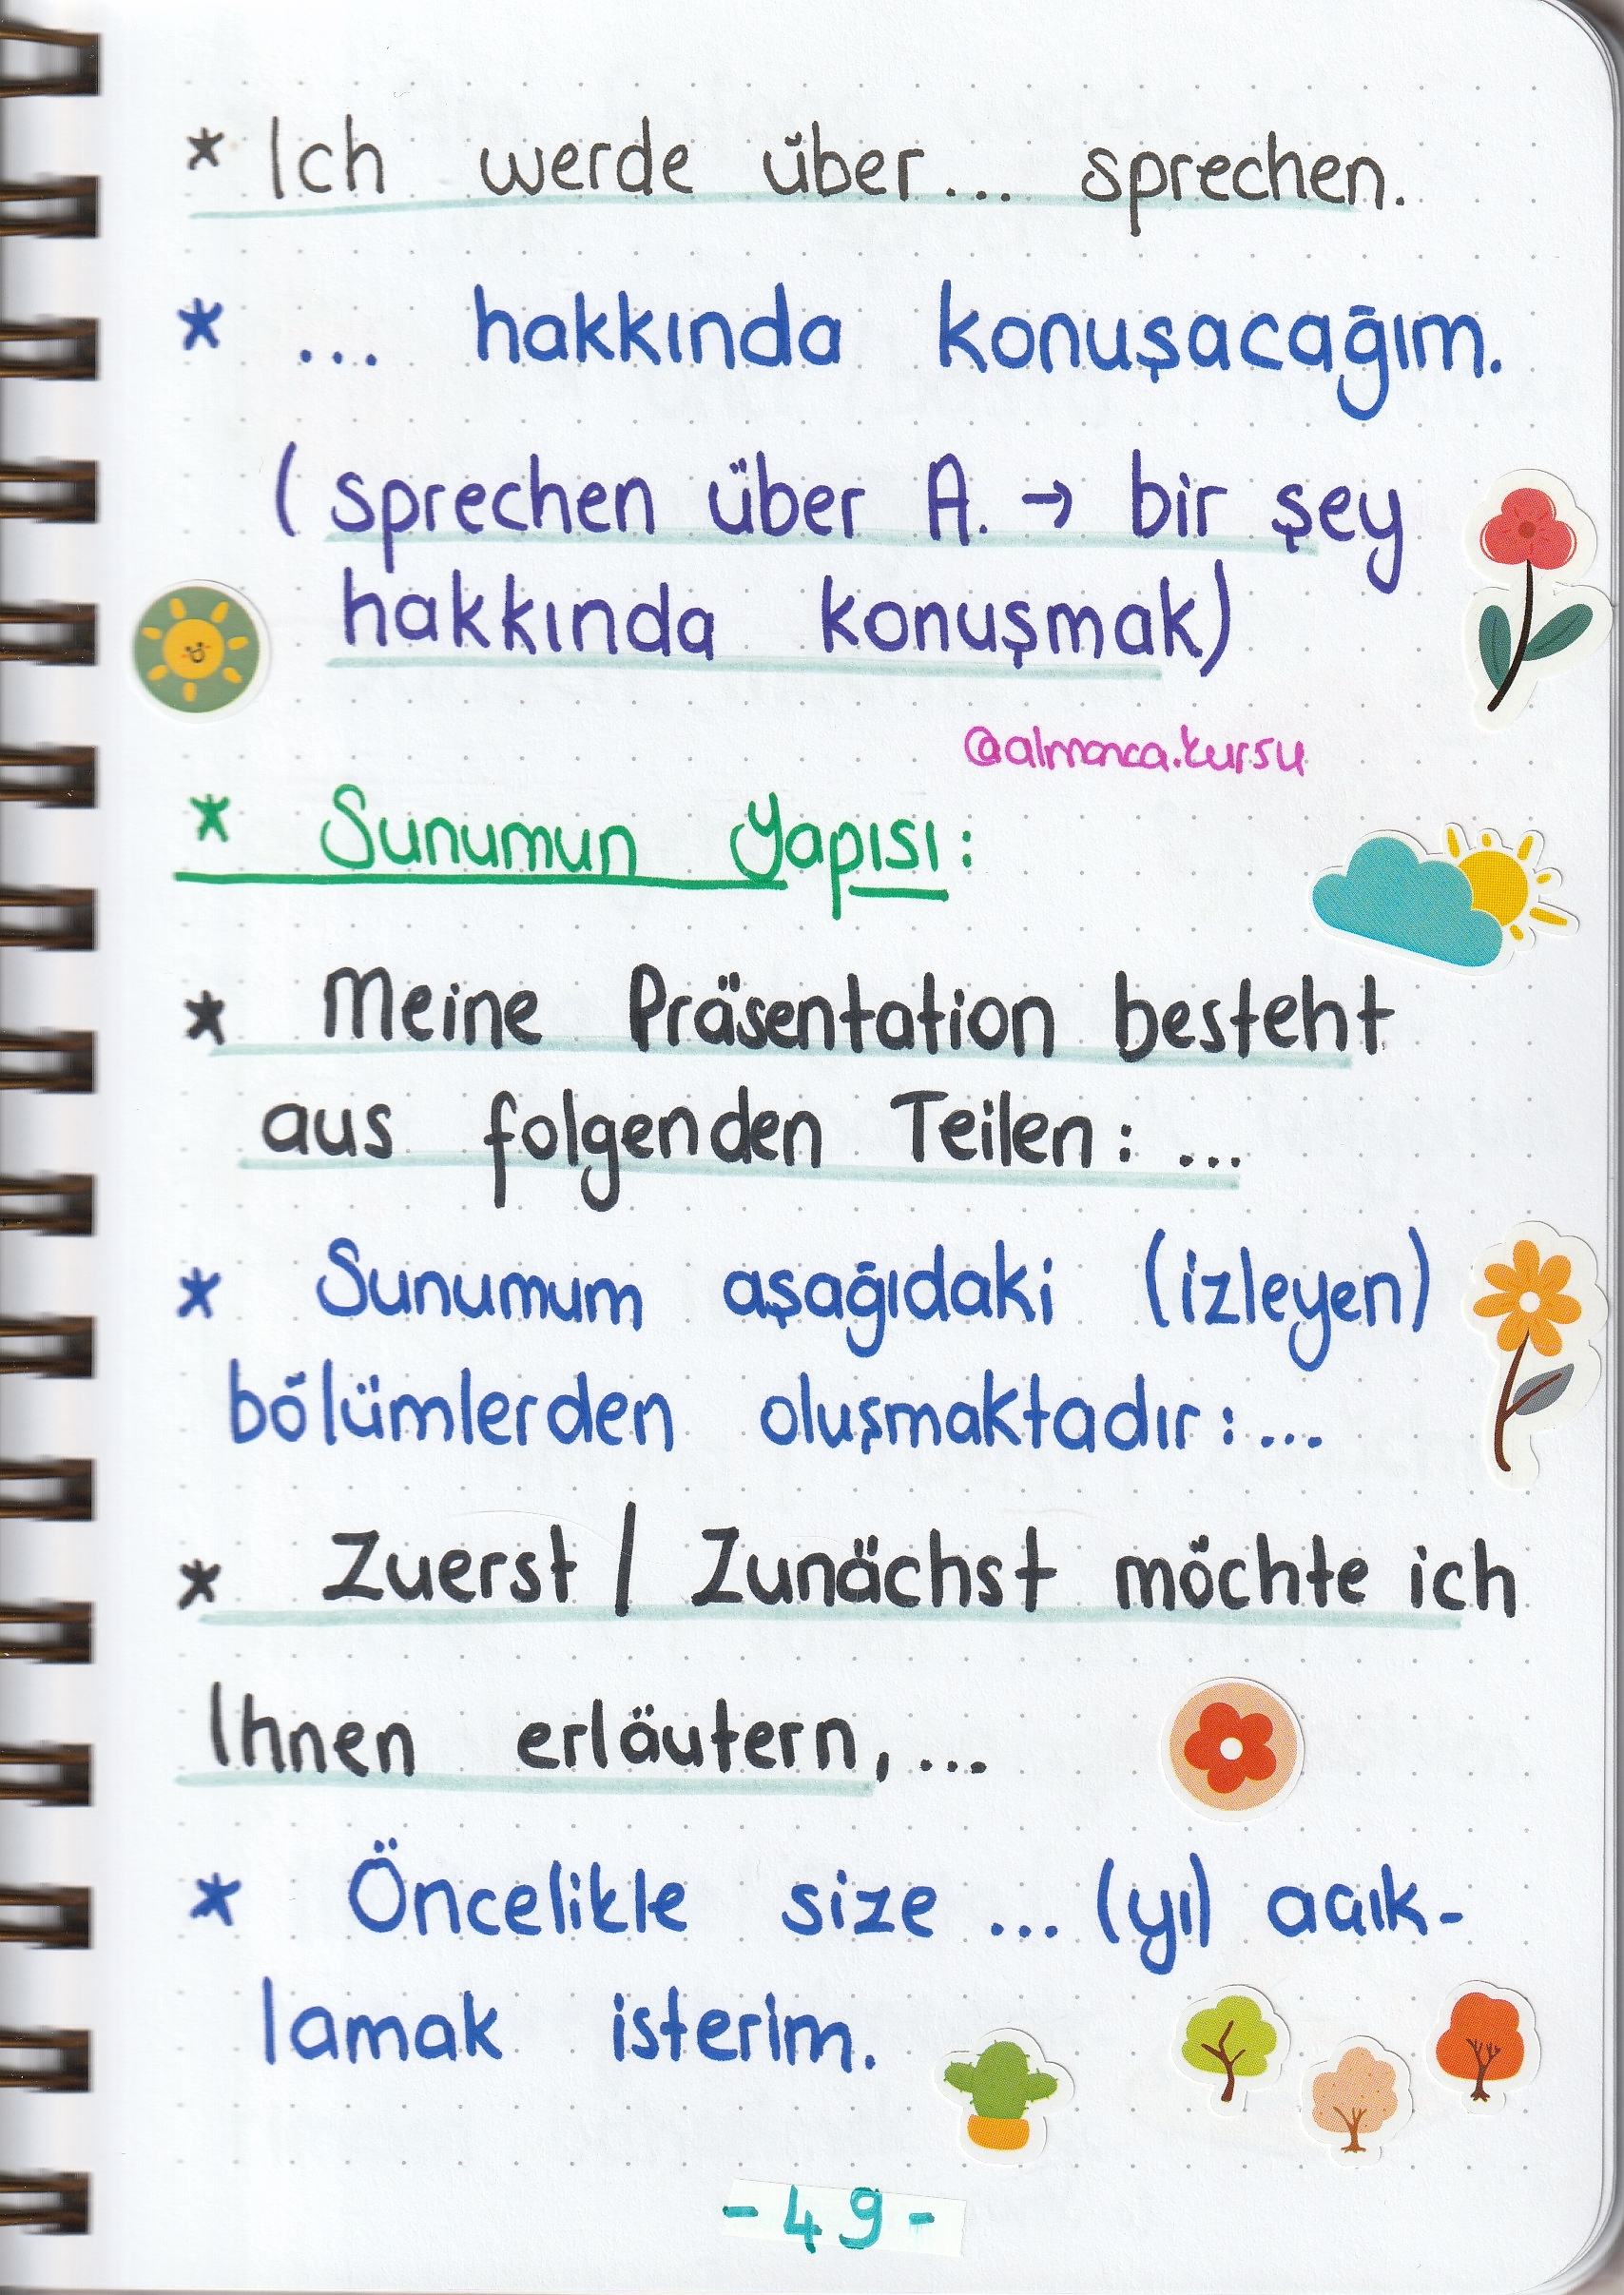 * Ich werde über... sprechen.
* ... hakkında konuşacağım.
( sprechen über A. → bir şey
hakkında konuşmak)
@almanca.kursu
* Sunumun Yapısı:
* Meine Präsentation besteht
aus folgenden Teilen: ...
* Sunumum aşağıdaki (izleyen)
bölümlerden oluşmaktadır: ...
* Zuerst / Zunächst möchte ich
Ihnen erläutern, ...
* Öncelikle size ... (yı) açık-
lamak isterim.
- 49 -